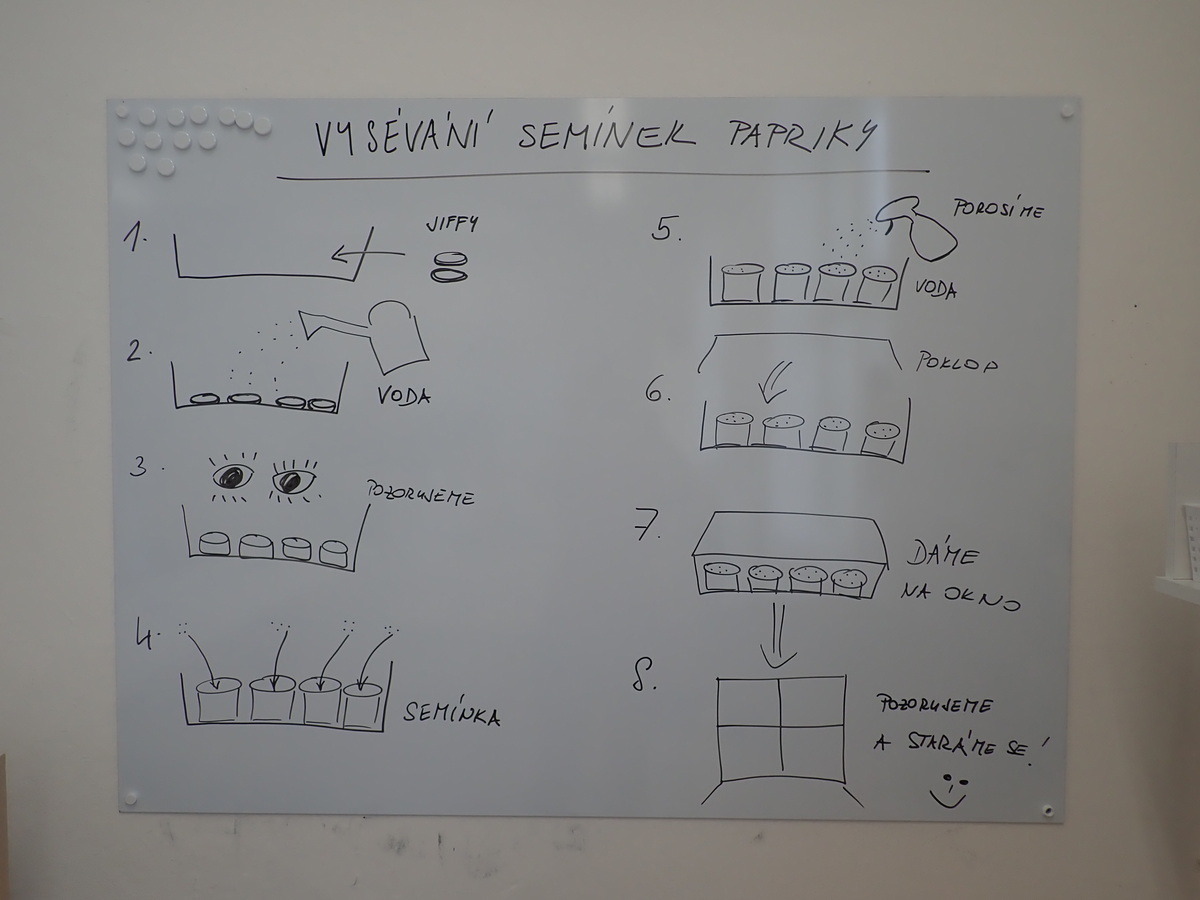 VYSÉVÁNÍ SEMÍNEK PAPRIKY
1.
JIFFY
2.
VODA
3.
POZORUJEME
4.
SEMÍNKA
5.
POROSÍME
VODA
6.
POKLOP
7.
DÁME
NA OKNO
8.
POZORUJEME
A STARÁME SE!